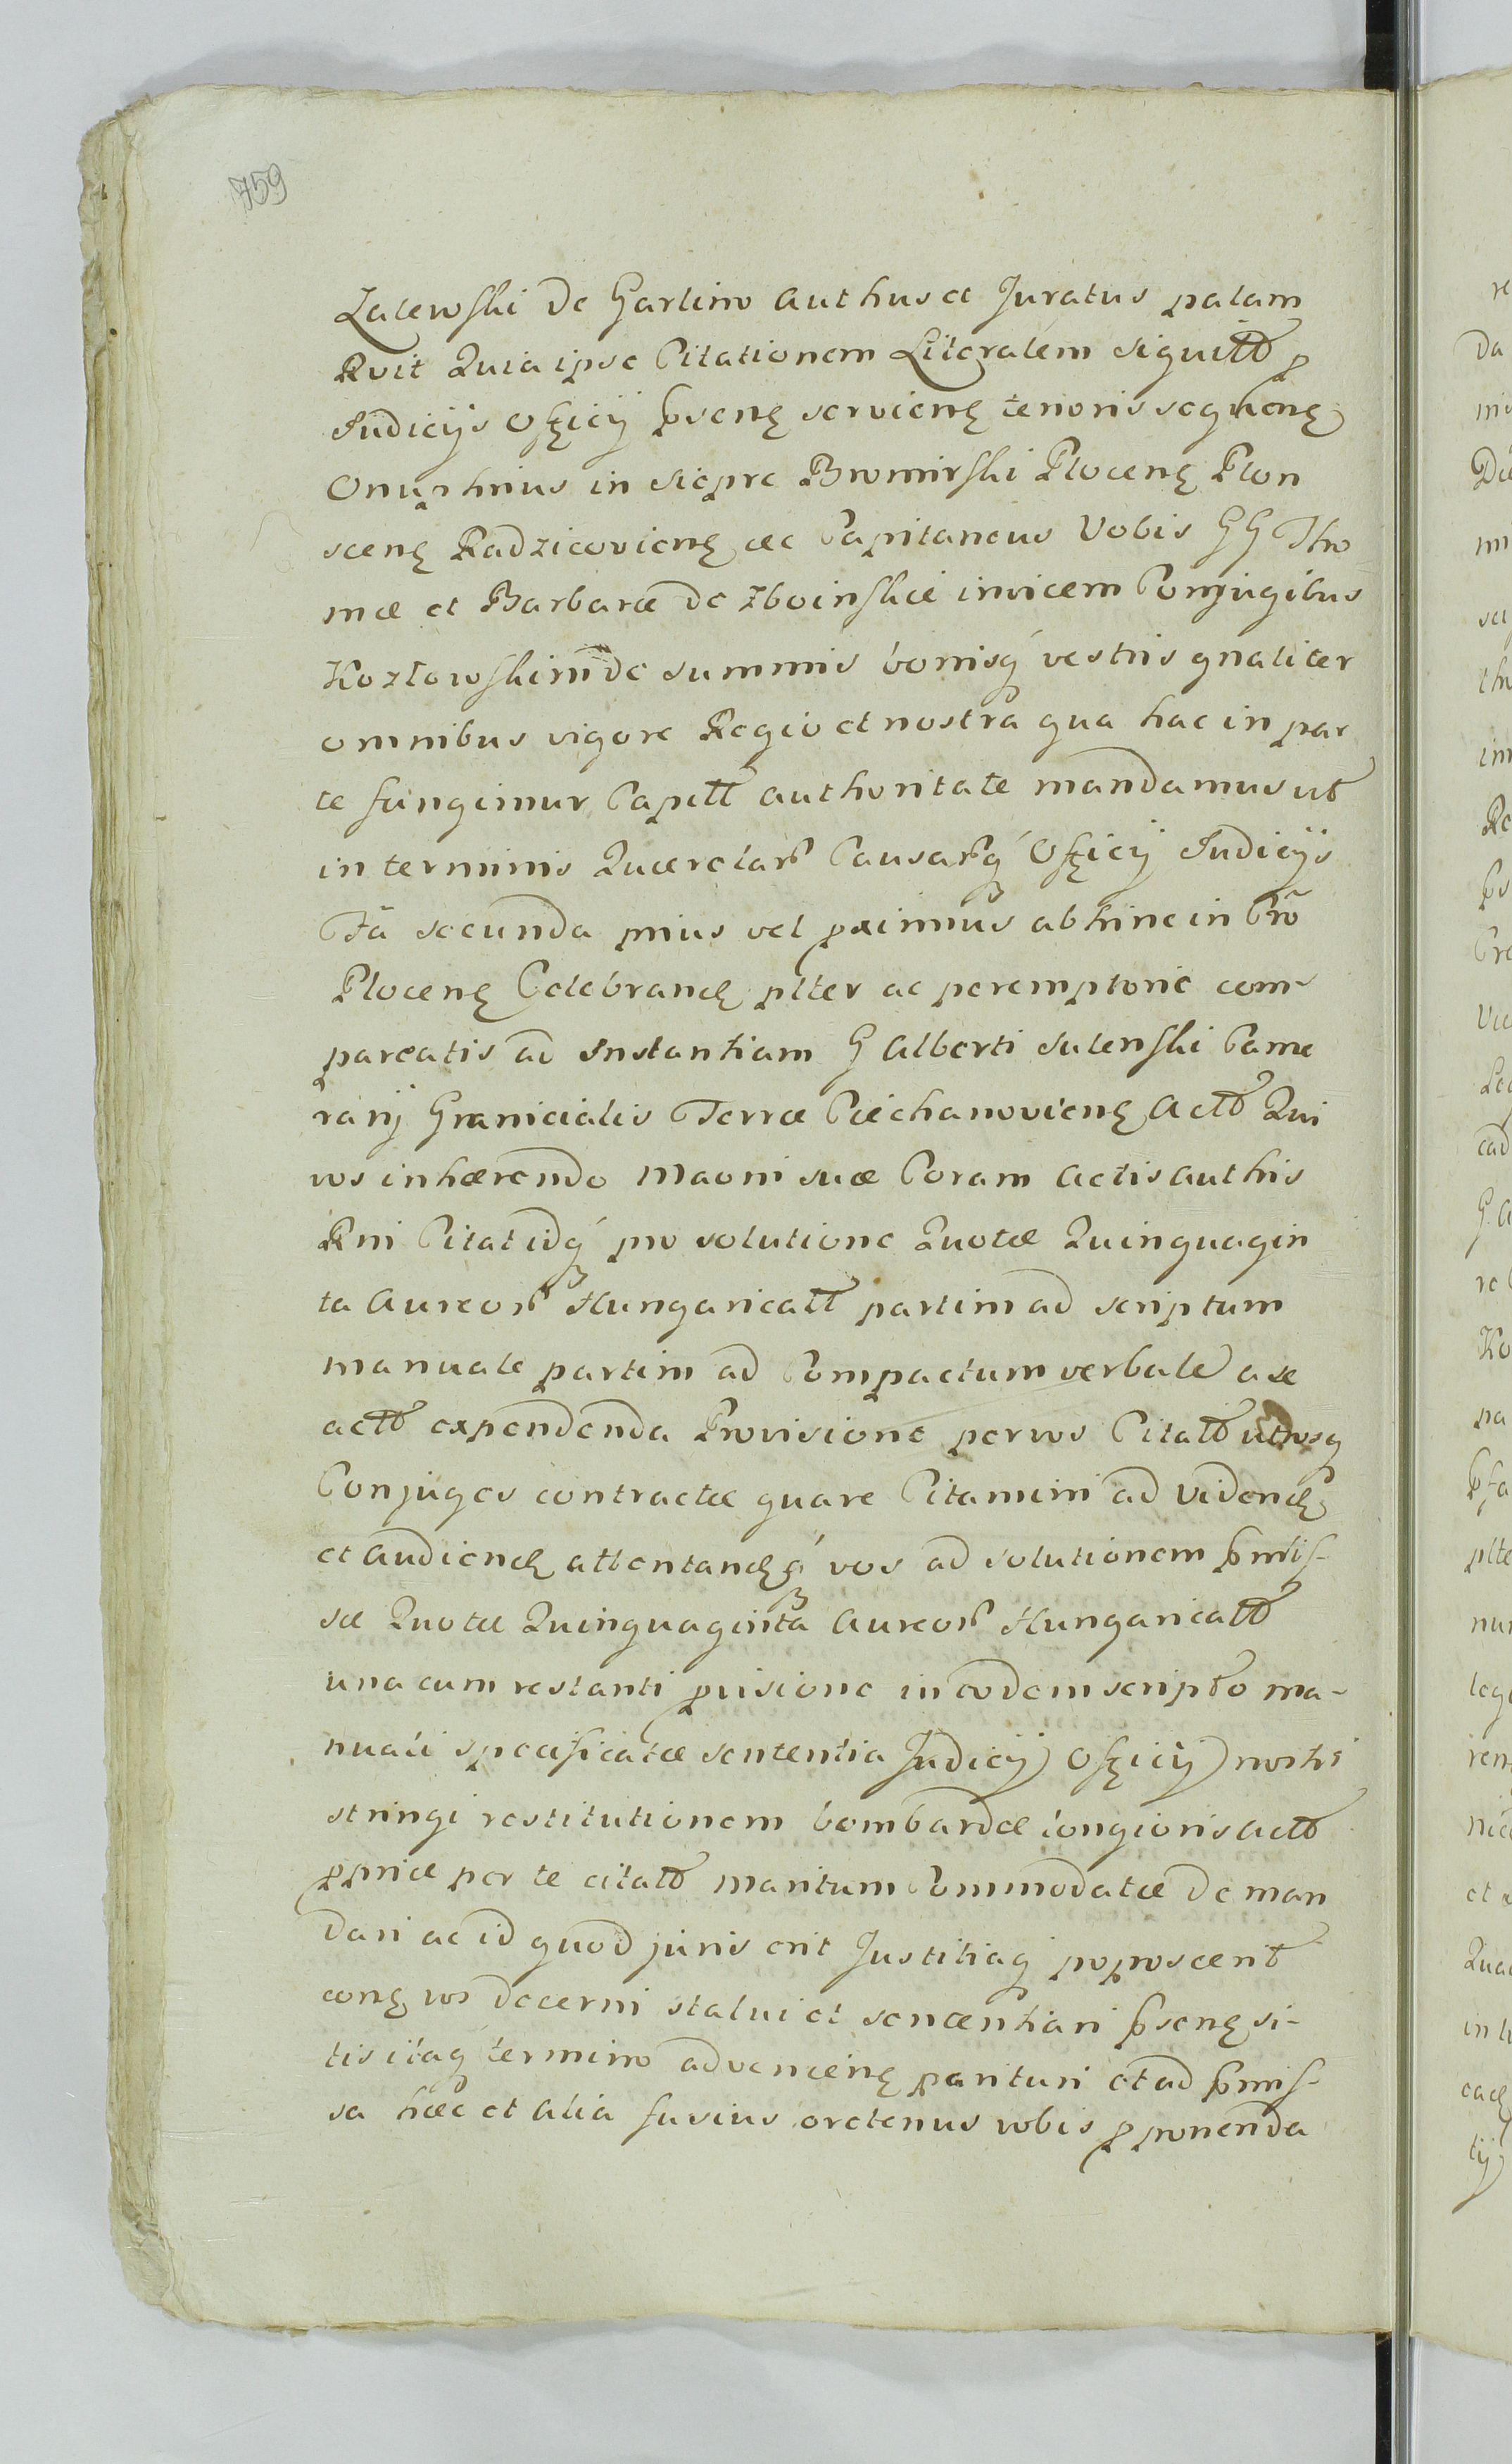 759
Zalewski de Garlino authus et Juratus palam
Rvit Quia ipse Citationem Literalem Siguillt p
Judicijs Officij psenę servienę tenoris seqhenę
Onuphrius in Siepre Bromirski Plocenę Plon
scenę Radzicovienę &c Capitaneus Vobis GG Tho
mæ et Barbaræ de Zboinskie invicem Conjugibus
Kozlowskim de summis bonisq́ vestris gnaliter
omnibus vigore Regio et nostra qua hac in par
te fungimur Capitt authoritate mandamus ut
in terminis Quærelarū Causarq́ Officij Judicijs
Fã secunda prius vel pximus abhinc in Crõ
Plocenę Celebrandę plter ac peremptorie com-
pareatis ad Instantiam G Alberti Sulenski Came
rarij Granicialis Terræ Ciechanovienę Actt Qui
vos inhærendo maoni suæ Coram Actis authis
Rni Citat idq́ pro solutione Quotæ Quinquagin
ta Aureorū Hungaricatt partim ad scriptum
manuale partim ad Compactum verbale a se
actt expendenda Provisione per vos Citatt utrosq
Conjuges contractæ quare Citamini ad Videndę
et audiendę attentandęq́ vos ad solutionem pmis-
sæ Quotæ Quinquaginta Aureorū Hungaricatt
una cum restanti pvisione in eodem scripto ma-
nuali specificatæ sententia Judicij Officij nostri
stringi restitutionem bombardæ longioris actt
ppriæ per te citatt maritum Commodatæ deman
dari ac id quod juris erit Justitiaq poposcerit
conę vos decerni statui et sentenhari psenę si-
tis itaq termino advenienę parituri et ad pmis-
sa hæc et alia fusius oretenus vobis pponenda